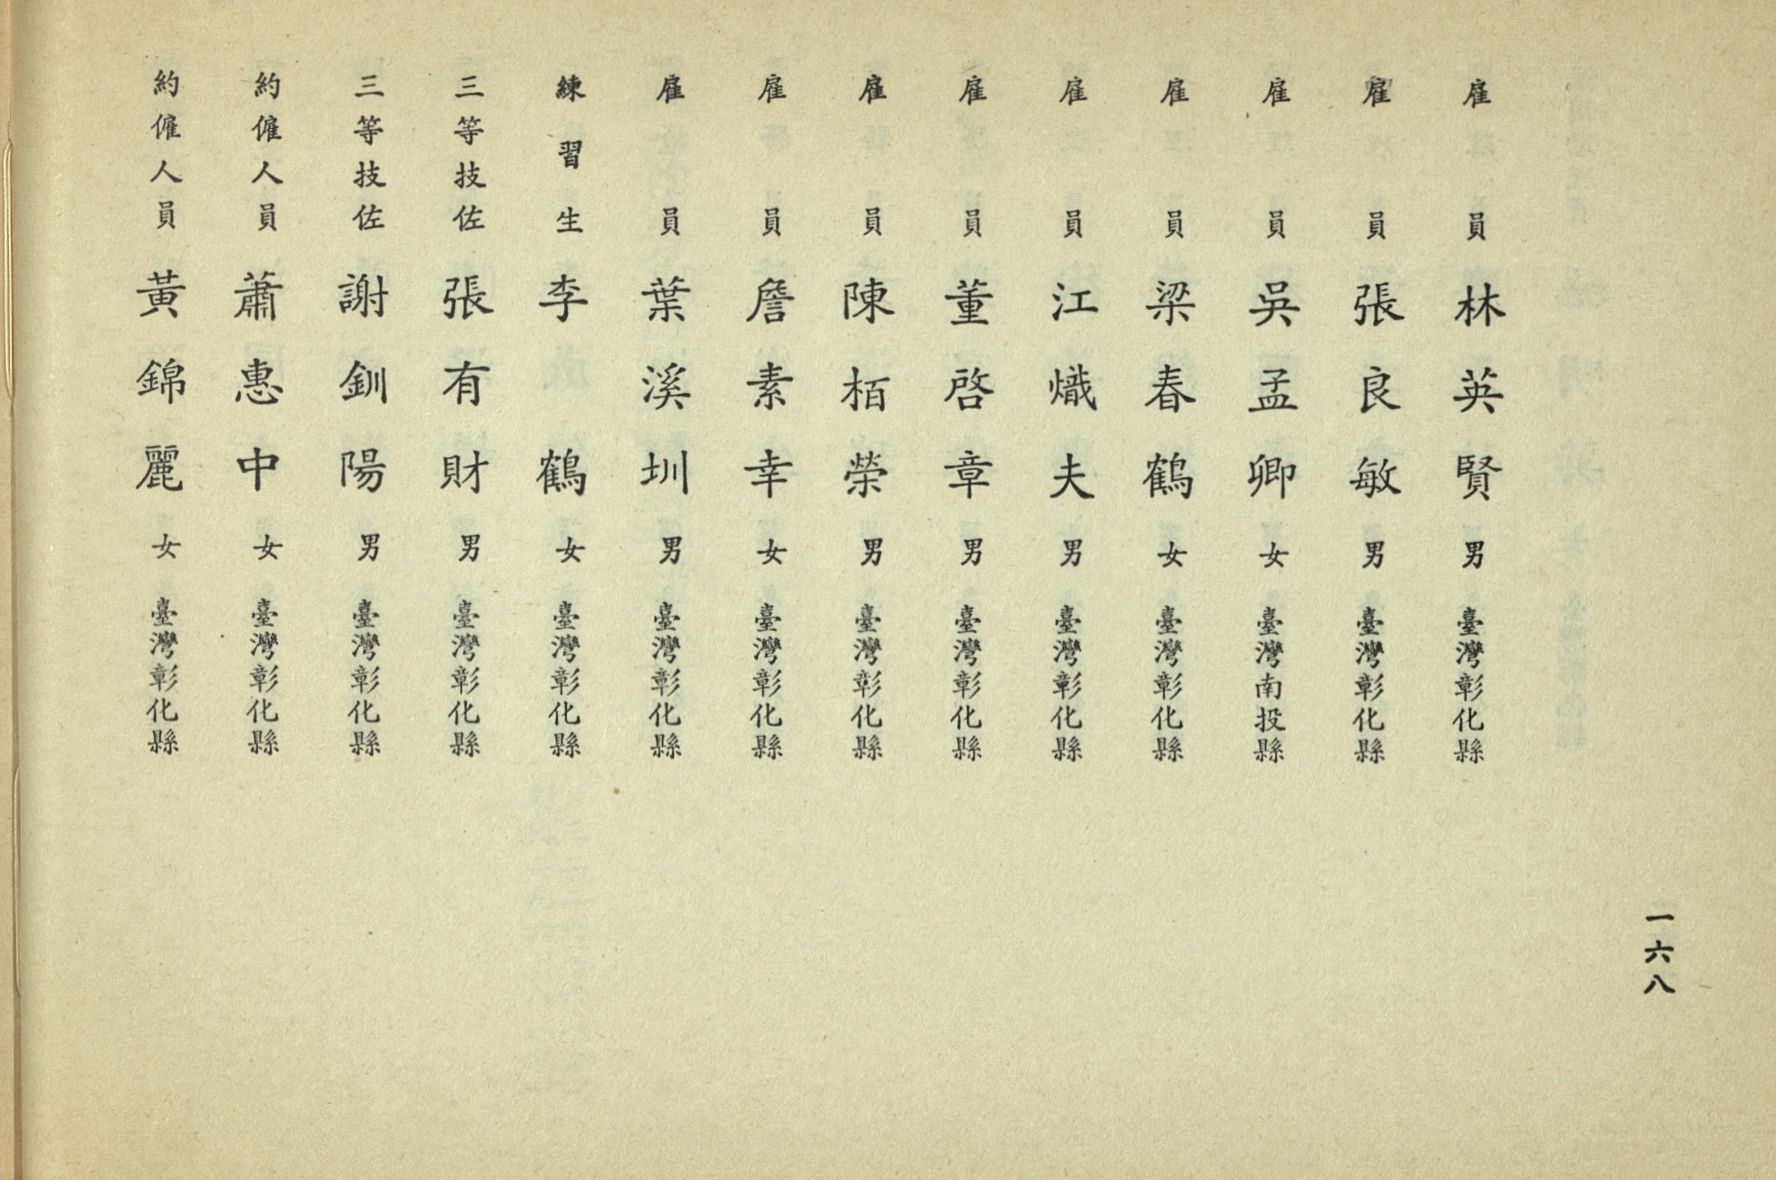 雇員 林英賢 男 臺灣彰化縣
雇員 張良敏 男 臺灣彰化縣
雇員 吳孟卿 女 臺灣南投縣
雇員 梁春鶴 女 臺灣彰化縣
雇員 江熾夫 男 臺灣彰化縣
雇員 董啓章 男 臺灣彰化縣
雇員 陳栢榮 男 臺灣彰化縣
雇員 詹素幸 女 臺灣彰化縣
雇員 葉溪圳 男 臺灣彰化縣
練習生 李鶴 女 臺灣彰化縣
三等技佐 張有財 男 臺灣彰化縣
三等技佐 謝釧陽 男 臺灣彰化縣
約僱人員 蕭惠中 女 臺灣彰化縣
約僱人員 黃錦麗 女 臺灣彰化縣
一六八